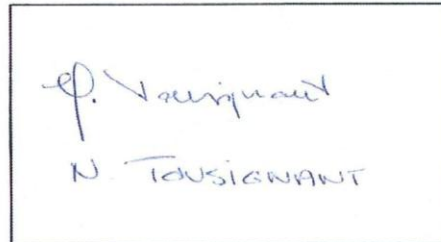 N. Tousignant
N. TOUSIGNANT